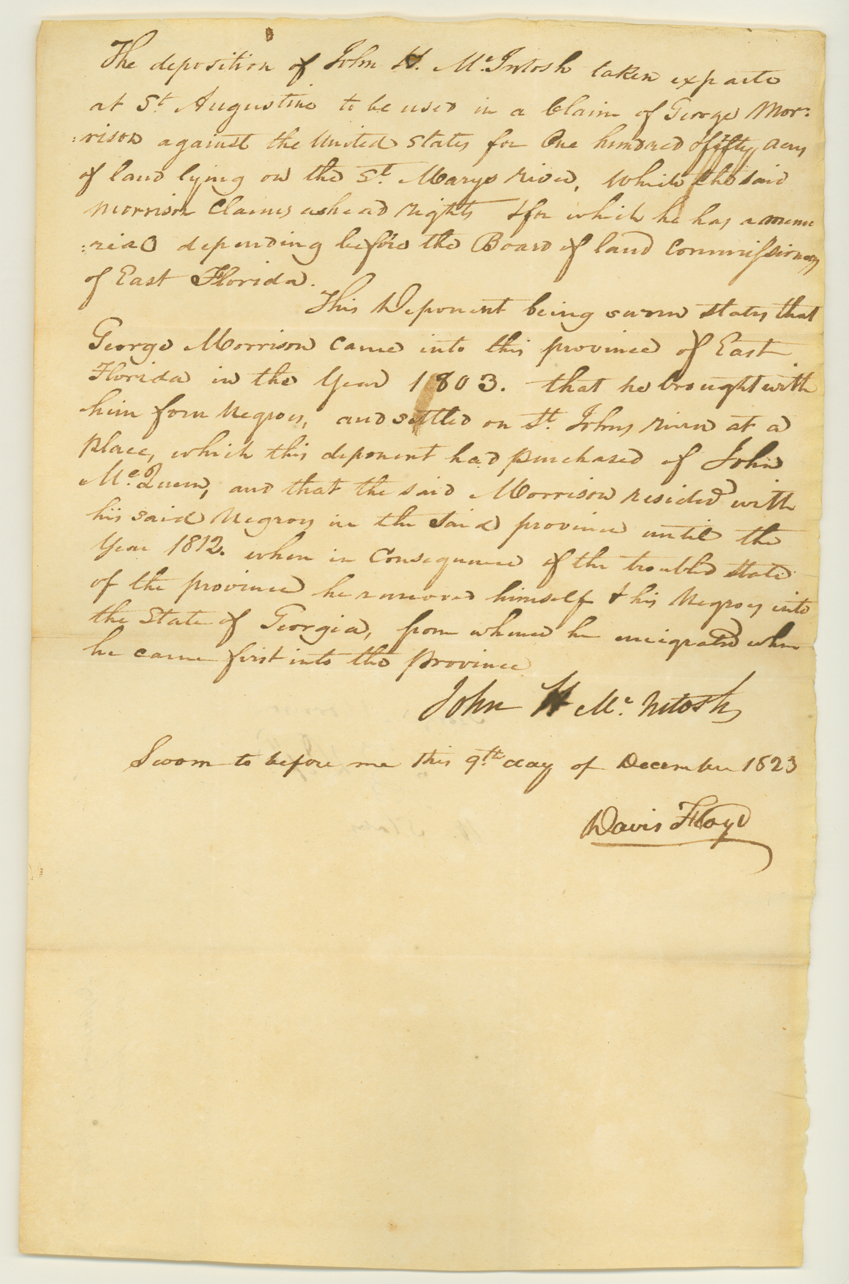 The deposition of John H. McIntosh taken exparte
at St Augustine to be used in a Claim of George Mor:
:rison against the United States for One hundred & fifty acres
of land lying on the St. Marys river, which the said
Morrison Claims as head rights & for which he has a memo
:rial depending before the Board of land Commissioners
of East Florida.
This Deponent being sworn states that
George Morrison came into this province of East
Florida in the Year 1803. that he brought with
him four Negroes, and settled on St. Johns river at a
place, which this deponent had purchased of John
McQueen, and that the said Morrison resided with
his said Negroes in the said province until the
Year 1812. when in Consequence of the troubled state
of the province he removed himself & his Negroes into
the State of Georgia, from whence he emigrated when
he came first into the province
John H McIntosh
Sworn to before me this 9th day of December 1823
Davis Floyd